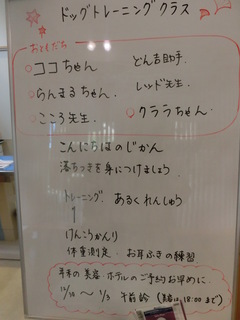 ドッグトレーニングクラス
おともだち
ココちゃん
どん吉助手.
らんまるちゃん.
レッド先生.
こころ先生.
クララちゃん.
こんにちはのじかん
落ちつきを身につけましょう
トレーニング.
あるくれんしゅう
けんこうかんり
体重測定. お耳ふきの練習
年末の美容.ホテルのご予約お早めに.
12/30 〜 1/3 午前
18:00 まで)